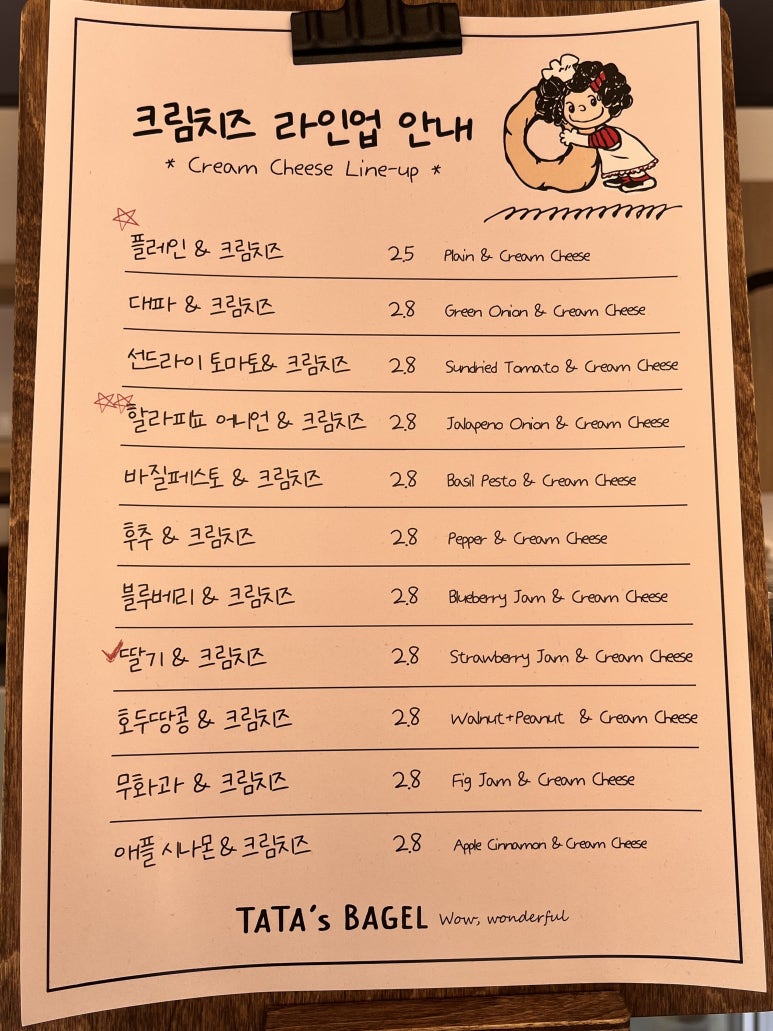 크림치즈 라인업 안내
* Cream Cheese Line-up *
플레인 & 크림치즈 2.5 Plain & Cream Cheese
대파 & 크림치즈 2.8 Green Onion & Cream Cheese
선드라이 토마토& 크림치즈 2.8 Sundried Tomato & Cream Cheese
할라피뇨 어니언 & 크림치즈 2.8 Jalapeno Onion & Cream Cheese
바질페스토 & 크림치즈 2.8 Basil Pesto & Cream Cheese
후추 & 크림치즈 2.8 Pepper & Cream Cheese
블루베리 & 크림치즈 2.8 Blueberry Jam & Cream Cheese
딸기 & 크림치즈 2.8 Strawberry Jam & Cream Cheese
호두땅콩 & 크림치즈 2.8 Walnut+Peanut & Cream Cheese
무화과 & 크림치즈 2.8 Fig Jam & Cream Cheese
애플 시나몬 & 크림치즈 2.8 Apple Cinnamon & Cream Cheese
TATA's BAGEL Wow, wonderful